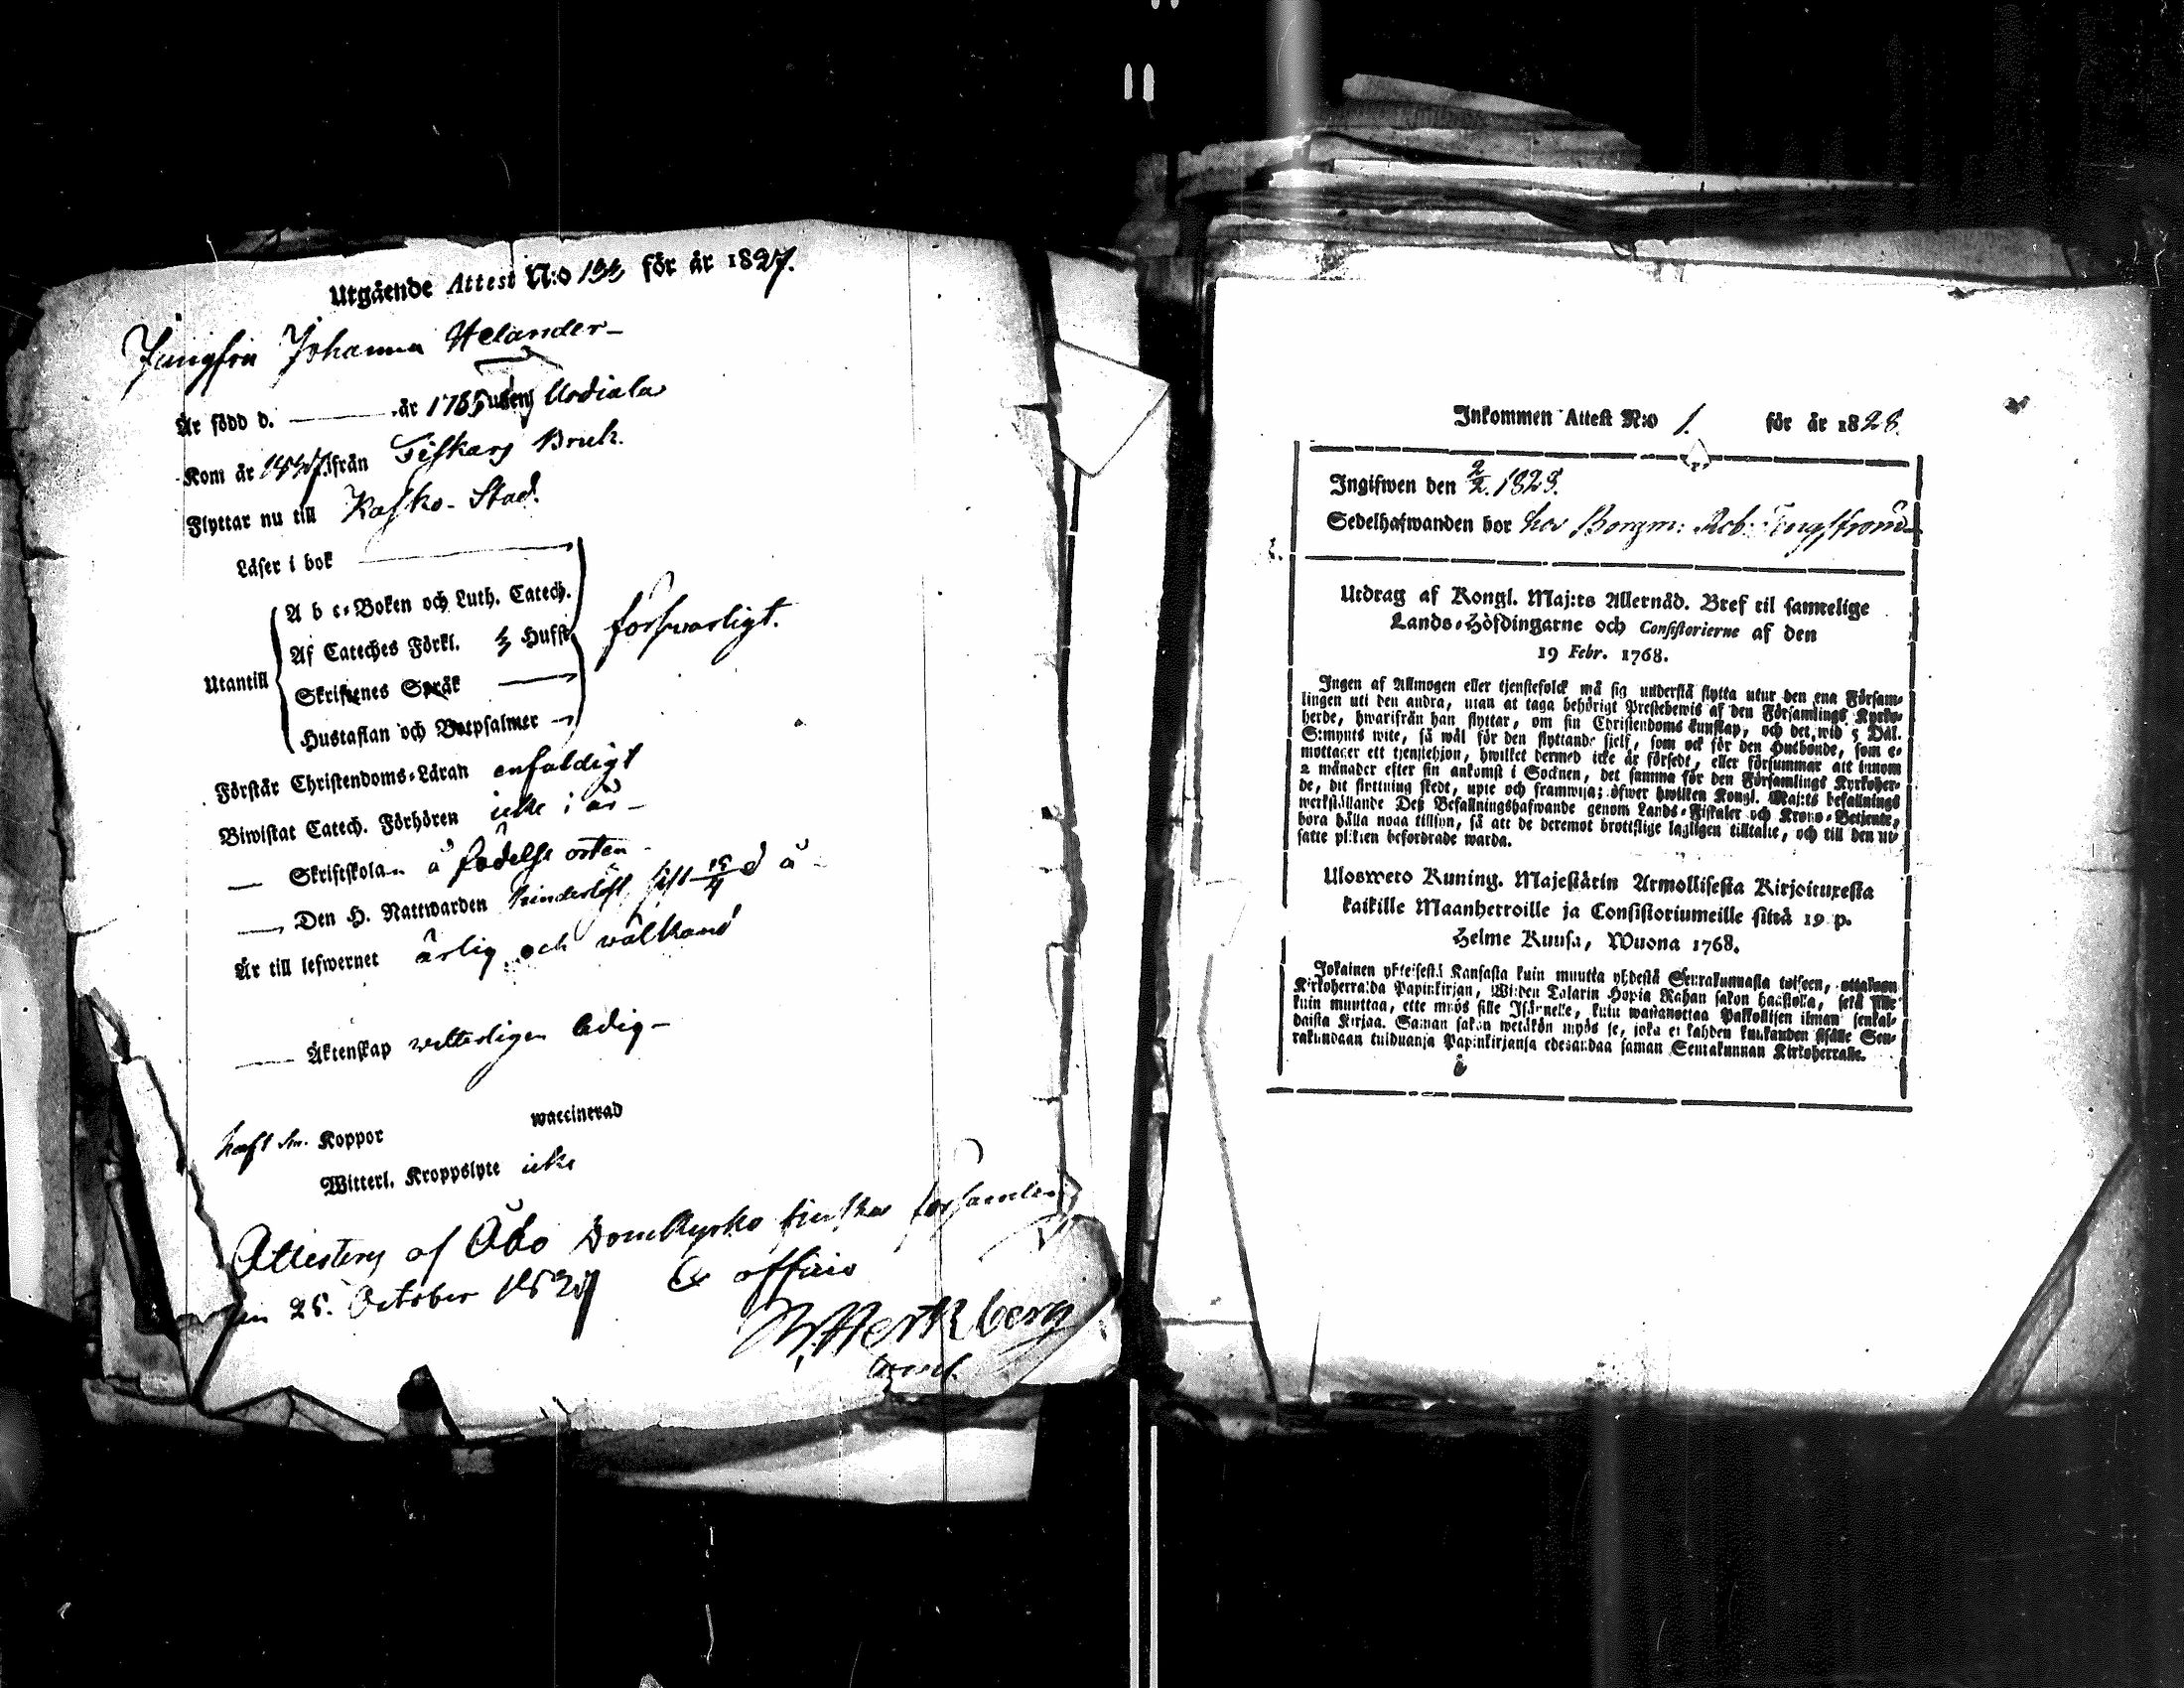 Utgående Attest N:o 133 för år 1827.
Jungfru Johanna Helander
Är född d. — år 1765 uti Urdiala
Kom år 1827 ifrån Fiskars Bruk.
Flyttar nu till Kasko Stad.
Läser i bok
A b c-Boken och Luth. Catech.
Af Cateches Förkl. 3 Hufst
försvarligt.
Utantill
Skriftenes Språk
Hustaflan och Botpsalmer
Förstår Christendoms-Läran enfaldigt
Biwistat Catech. Förhören icke i år
— Skriftskolan å födelse orten
— Den H. Nattwarden hinderlöst sist d å
Är till lefwernet ärlig och välkänd
— Äktenskap vetterligen ledig
haft Koppor waccinerad
Witterl. Kroppslyte icke
Attesteras af Åbo Domkyrko finska församling
den 25. October 1827 Ex officio
Inkommen Attest N:o 1. för år 1828.
Ingifwen den 2/2 1828.
Sedelhafwanden bor hos Borgm: Rob:
Utdrag af Kongl. Maj:ts Allernåd. Bref til samtelige
Lands-Höfdingarne och Consistorierne af den
19 Febr. 1768.
Ingen af Allmogen eller tjenstefolck må sig understå flytta utur den ena Försam-
lingen uti den andra, utan at taga behörigt Prestebewis af den Församlings Kyrko-
herde, hwarifrån han flyttar, om sin Christendoms kunskap, och det wid 5 Dal.
S:mynts wite, så wäl för den flyttande sjelf, som ock för den Husbonde, som e-
mottager ett tjenstehjon, hwilket dermed icke är försedt, eller försummar att innom
2 månader efter sin ankomst i Socknen, det samma för den Församlings Kyrkoher-
de, dit flyttning skedt, upte och framwisa; öfwer hwilken Kongl. Maj:ts befallnings
werkställande Deß Befallningshafwande genom Lands-Fiskaler och Krono-Betjente,
böra hålla noga tillsyn, så att de deremot brottslige lagligen tilltalte, och till den ut-
satte plikten befordrade warda.
Ulosweto Kuning. Majestätin Armollisesta Kirjoituxesta
kaikille Maanherroille ja Consistoriumeille siitä 19 p.
Helme Kuusa, Wuona 1768.
Jokainen yhteisestä Kansasta kuin muutta yhdestä Seurakunnasta toiseen, ottakoon
Kirkoherralda Papinkirjan, Wiiden Talarin Hopia Rahan sakon haastolla, sekä sille
kuin muuttaa, ette myös sille Isännelle, kuin wastanottaa Palkollisen ilman senkal-
daista Kirjaa. Saman sakon wetäkön myös se, joka ei kahden kuukauden sisälle Seu-
rakundaan tulduansa Papinkirjansa edesandaa saman Seurakunnan Kirkoherralle.